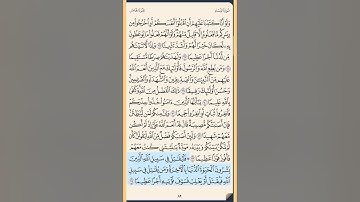 الجزء الخامس سورة النساء
وَلَوْ أَنَّا كَتَبْنَا عَلَيْهِمْ أَنِ ٱقْتُلُوٓا۟ أَنفُسَكُمْ أَوِ ٱخْرُجُوا۟ مِن
دِيَٰرِكُم مَّا فَعَلُوهُ إِلَّا قَلِيلٌ مِّنْهُمْ وَلَوْ أَنَّهُمْ فَعَلُوا۟ مَا يُوعَظُونَ
بِهِۦ لَكَانَ خَيْرًا لَّهُمْ وَأَشَدَّ تَثْبِيتًا ٦٦ وَإِذًا لَّءَاتَيْنَٰهُم
مِّن لَّدُنَّآ أَجْرًا عَظِيمًا ٦٧ وَلَهَدَيْنَٰهُمْ صِرَٰطًا مُّسْتَقِيمًا
٦٨ وَمَن يُطِعِ ٱللَّهَ وَٱلرَّسُولَ فَأُو۟لَٰٓئِكَ مَعَ ٱلَّذِينَ أَنْعَمَ ٱللَّهُ
عَلَيْهِم مِّنَ ٱلنَّبِيِّـۧنَ وَٱلصِّدِّيقِينَ وَٱلشُّهَدَآءِ وَٱلصَّٰلِحِينَ
وَحَسُنَ أُو۟لَٰٓئِكَ رَفِيقًا ٦٩ ذَٰلِكَ ٱلْفَضْلُ مِنَ ٱللَّهِ وَكَفَىٰ
بِٱللَّهِ عَلِيمًا ٧٠ يَٰٓأَيُّهَا ٱلَّذِينَ ءَامَنُوا۟ خُذُوا۟ حِذْرَكُمْ
فَٱنفِرُوا۟ ثُبَاتٍ أَوِ ٱنفِرُوا۟ جَمِيعًا ٧١ وَإِنَّ مِنكُمْ لَمَن لَّيُبَطِّئَنَّ
فَإِنْ أَصَٰبَتْكُم مُّصِيبَةٌ قَالَ قَدْ أَنْعَمَ ٱللَّهُ عَلَىَّ إِذْ لَمْ أَكُن
مَّعَهُمْ شَهِيدًا ٧٢ وَلَئِنْ أَصَٰبَكُمْ فَضْلٌ مِّنَ ٱللَّهِ لَيَقُولَنَّ كَأَن
لَّمْ تَكُنۢ بَيْنَكُمْ وَبَيْنَهُۥ مَوَدَّةٌ يَٰلَيْتَنِى كُنتُ مَعَهُمْ
فَأَفُوزَ فَوْزًا عَظِيمًا ٧٣ فَلْيُقَٰتِلْ فِى سَبِيلِ ٱللَّهِ ٱلَّذِينَ
يَشْرُونَ ٱلْحَيَوٰةَ ٱلدُّنْيَا بِٱلْءَاخِرَةِ وَمَن يُقَٰتِلْ فِى سَبِيلِ
ٱللَّهِ فَيُقْتَلْ أَوْ يَغْلِبْ فَسَوْفَ نُؤْتِيهِ أَجْرًا عَظِيمًا ٧٤
٨٩